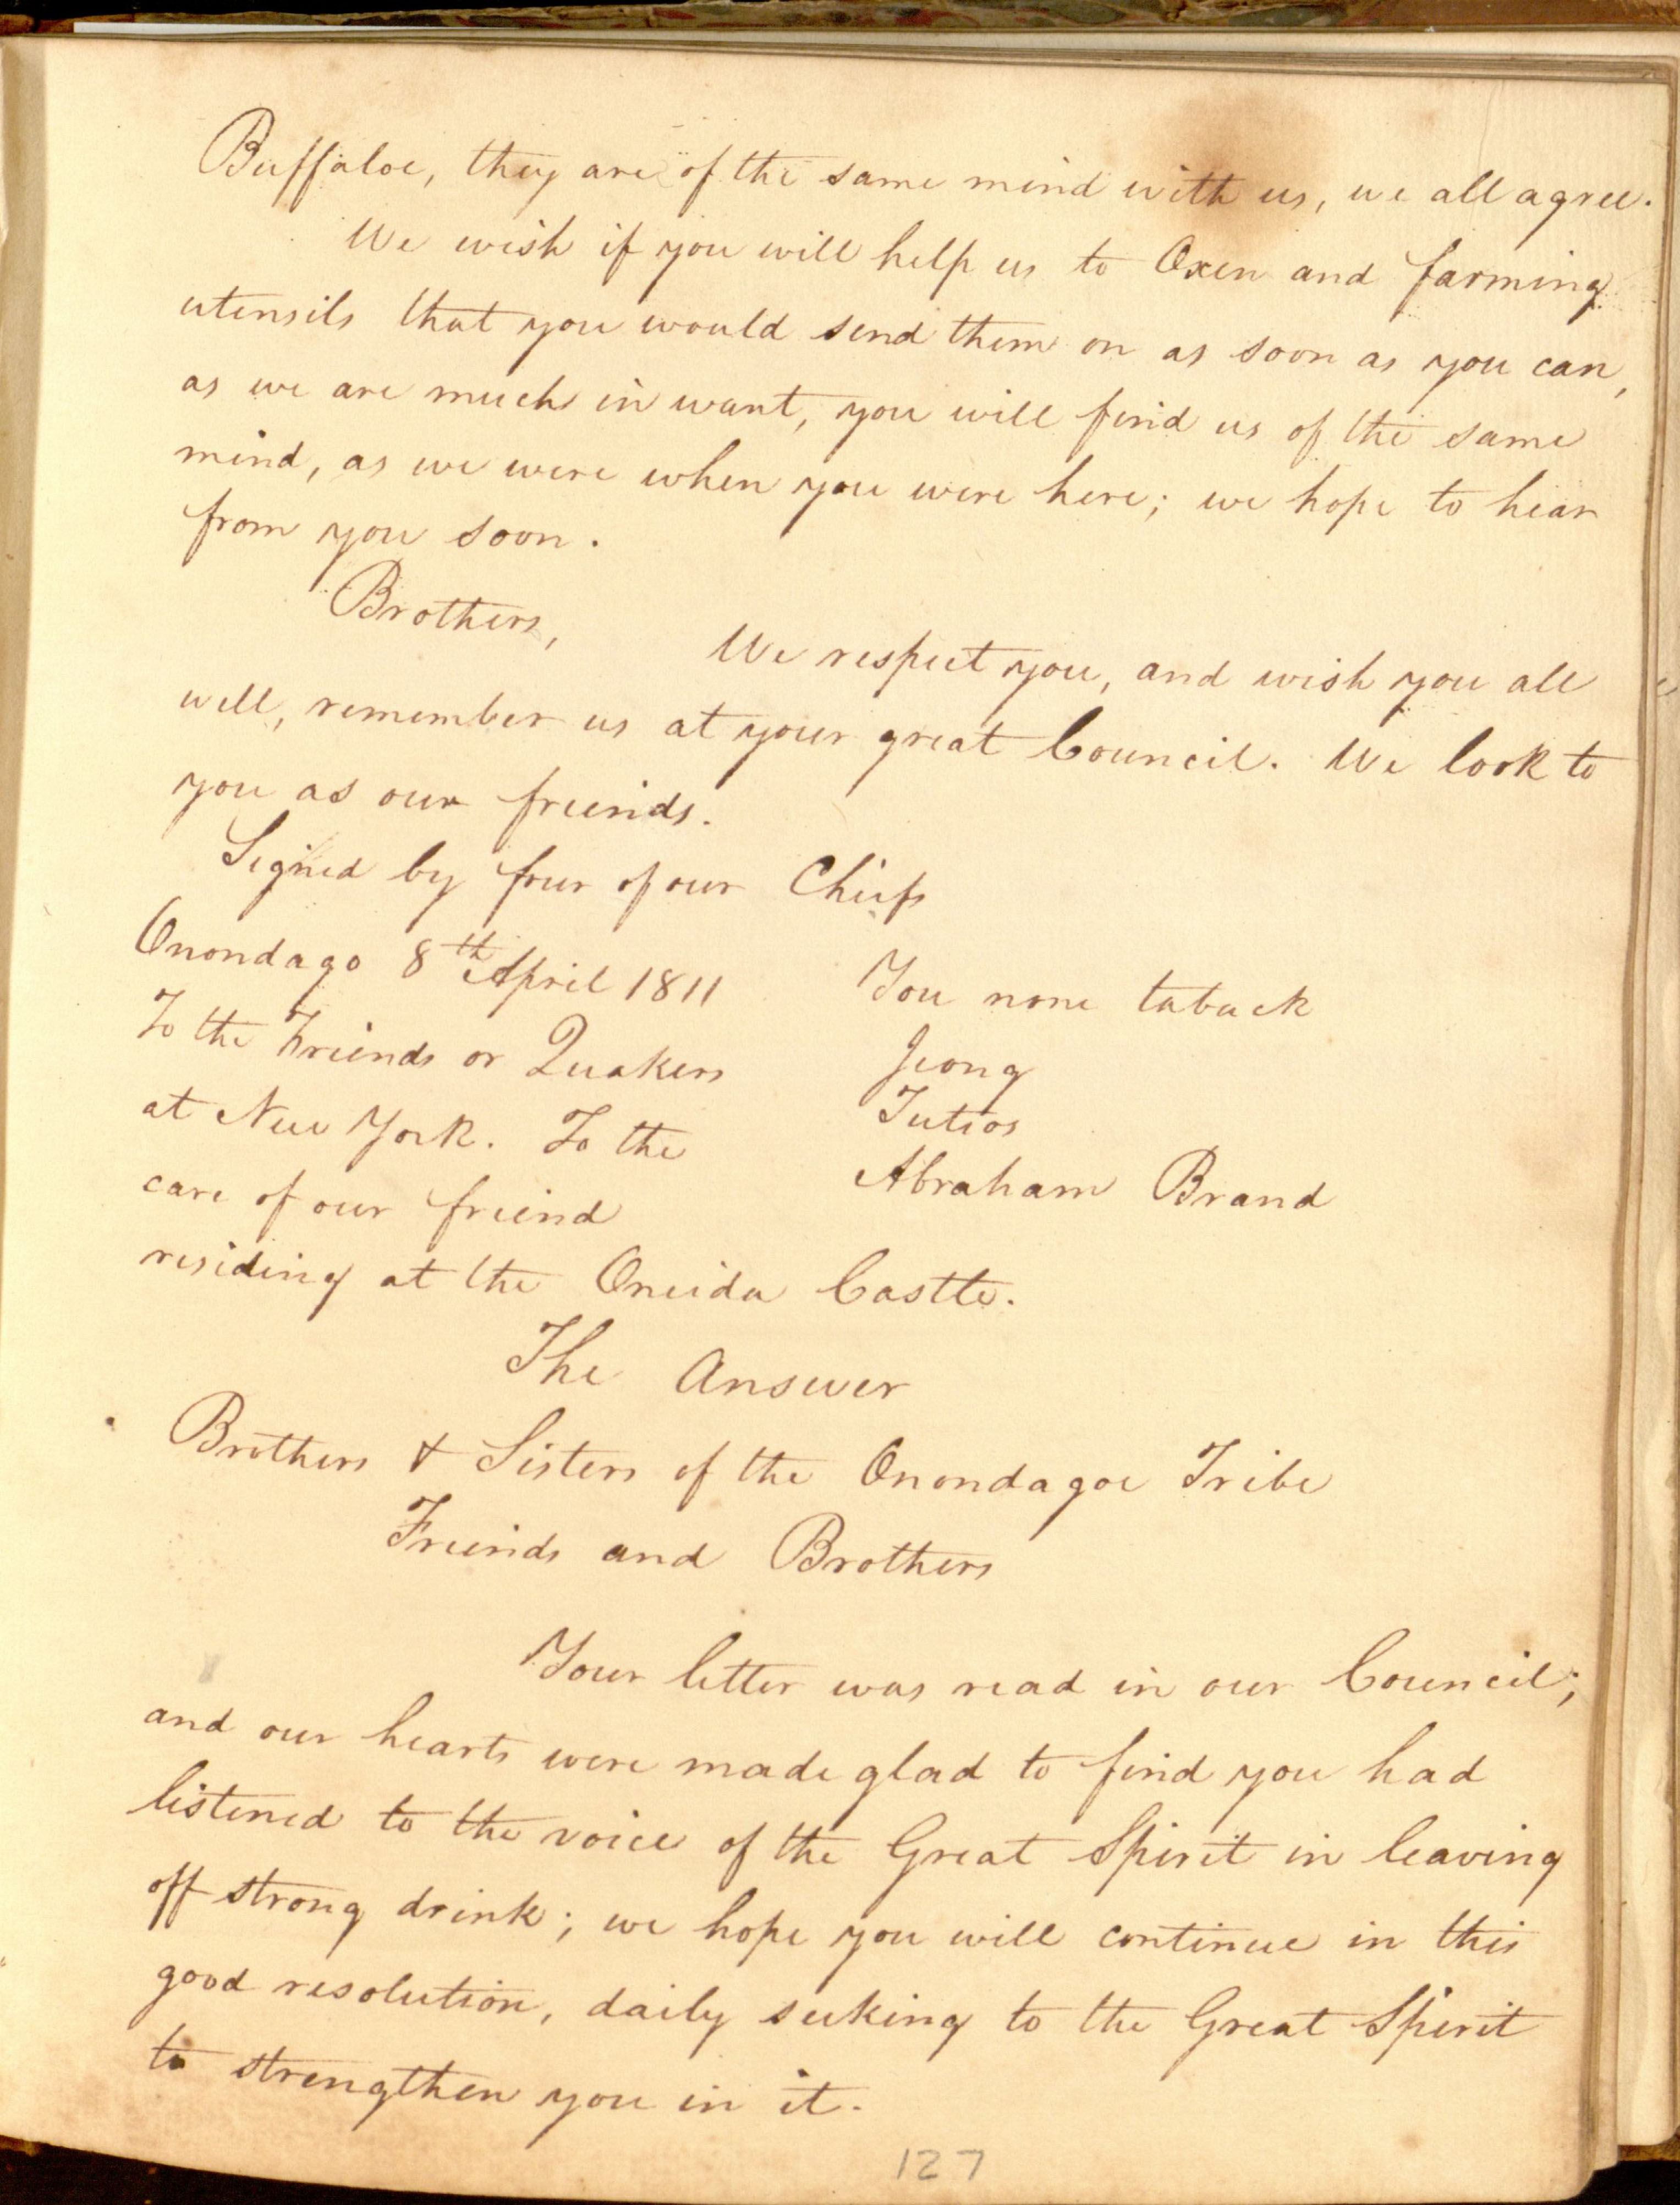 Buffaloe, they are of the same mind with us, we all agree.
We wish if you will help us to Oxen and farming
utensils that you would send them on as soon as you can,
as we are much in want, you will find us of the same
mind, as we were when you were here; we hope to hear
from you soon.
Brothers,
We respect you, and wish you all
well, remember us at your great Council. We look to
you as our friends.
Signed by four of our Chiefs
Onondago 8th April 1811
You none taback
To the Friends or Quakers
Jeong
at New York. To the
Tutios
care of our friend
Abraham Brand
residing at the Oneida Castle.
The Answer
Brothers & Sisters of the Onondagoe Tribe
Friends and Brothers
Your letter was read in our Council;
and our hearts were made glad to find you had
listened to the voice of the Great Spirit in leaving
off strong drink; we hope you will continue in this
good resolution, daily seeking to the Great Spirit
to strengthen you in it.
127